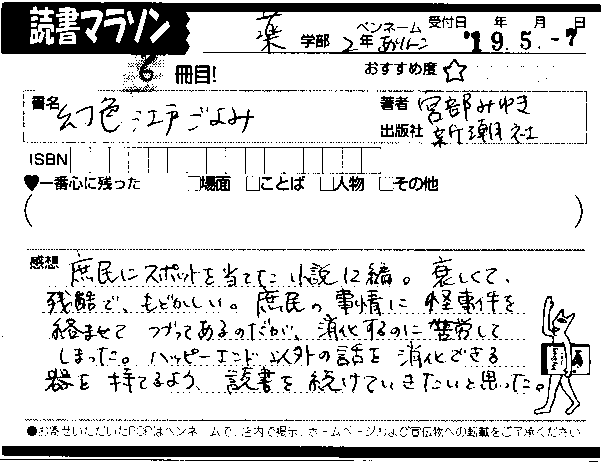 読書マラソン
薬 学部 2年 ペンネーム 受付日 年 月 日
'19.5.-7
6 冊目! おすすめ度 ☆
書名 幻色江戸ごよみ 著者 宮部みゆき
出版社 新潮社
ISBN
♥一番心に残った □場面 □ことば □人物 □その他
( )
感想 庶民にスポットを当てた小説12編。哀しくて、
残酷で、もどかしい。庶民の事情に怪事件を
絡ませてつづってあるのだが、消化するのに苦労して
しまった。ハッピーエンド以外の話を消化できる
器を持てるよう、読書を続けていきたいと思った。
●お寄せいただいたPOPはペンネームで、店内で掲示、ホームページおよび宣伝物への転載をご了承ください